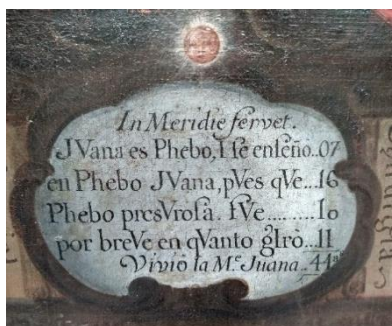 In Meridie fervet.
JVana es Phebo, I se enseño..07
en Phebo JVana, pVes qVe...16
Phebo presVrosa. fVe.........Io
por breVe en qVanto gIrò...II
Vivió la Mᵉ. Juana..44ª